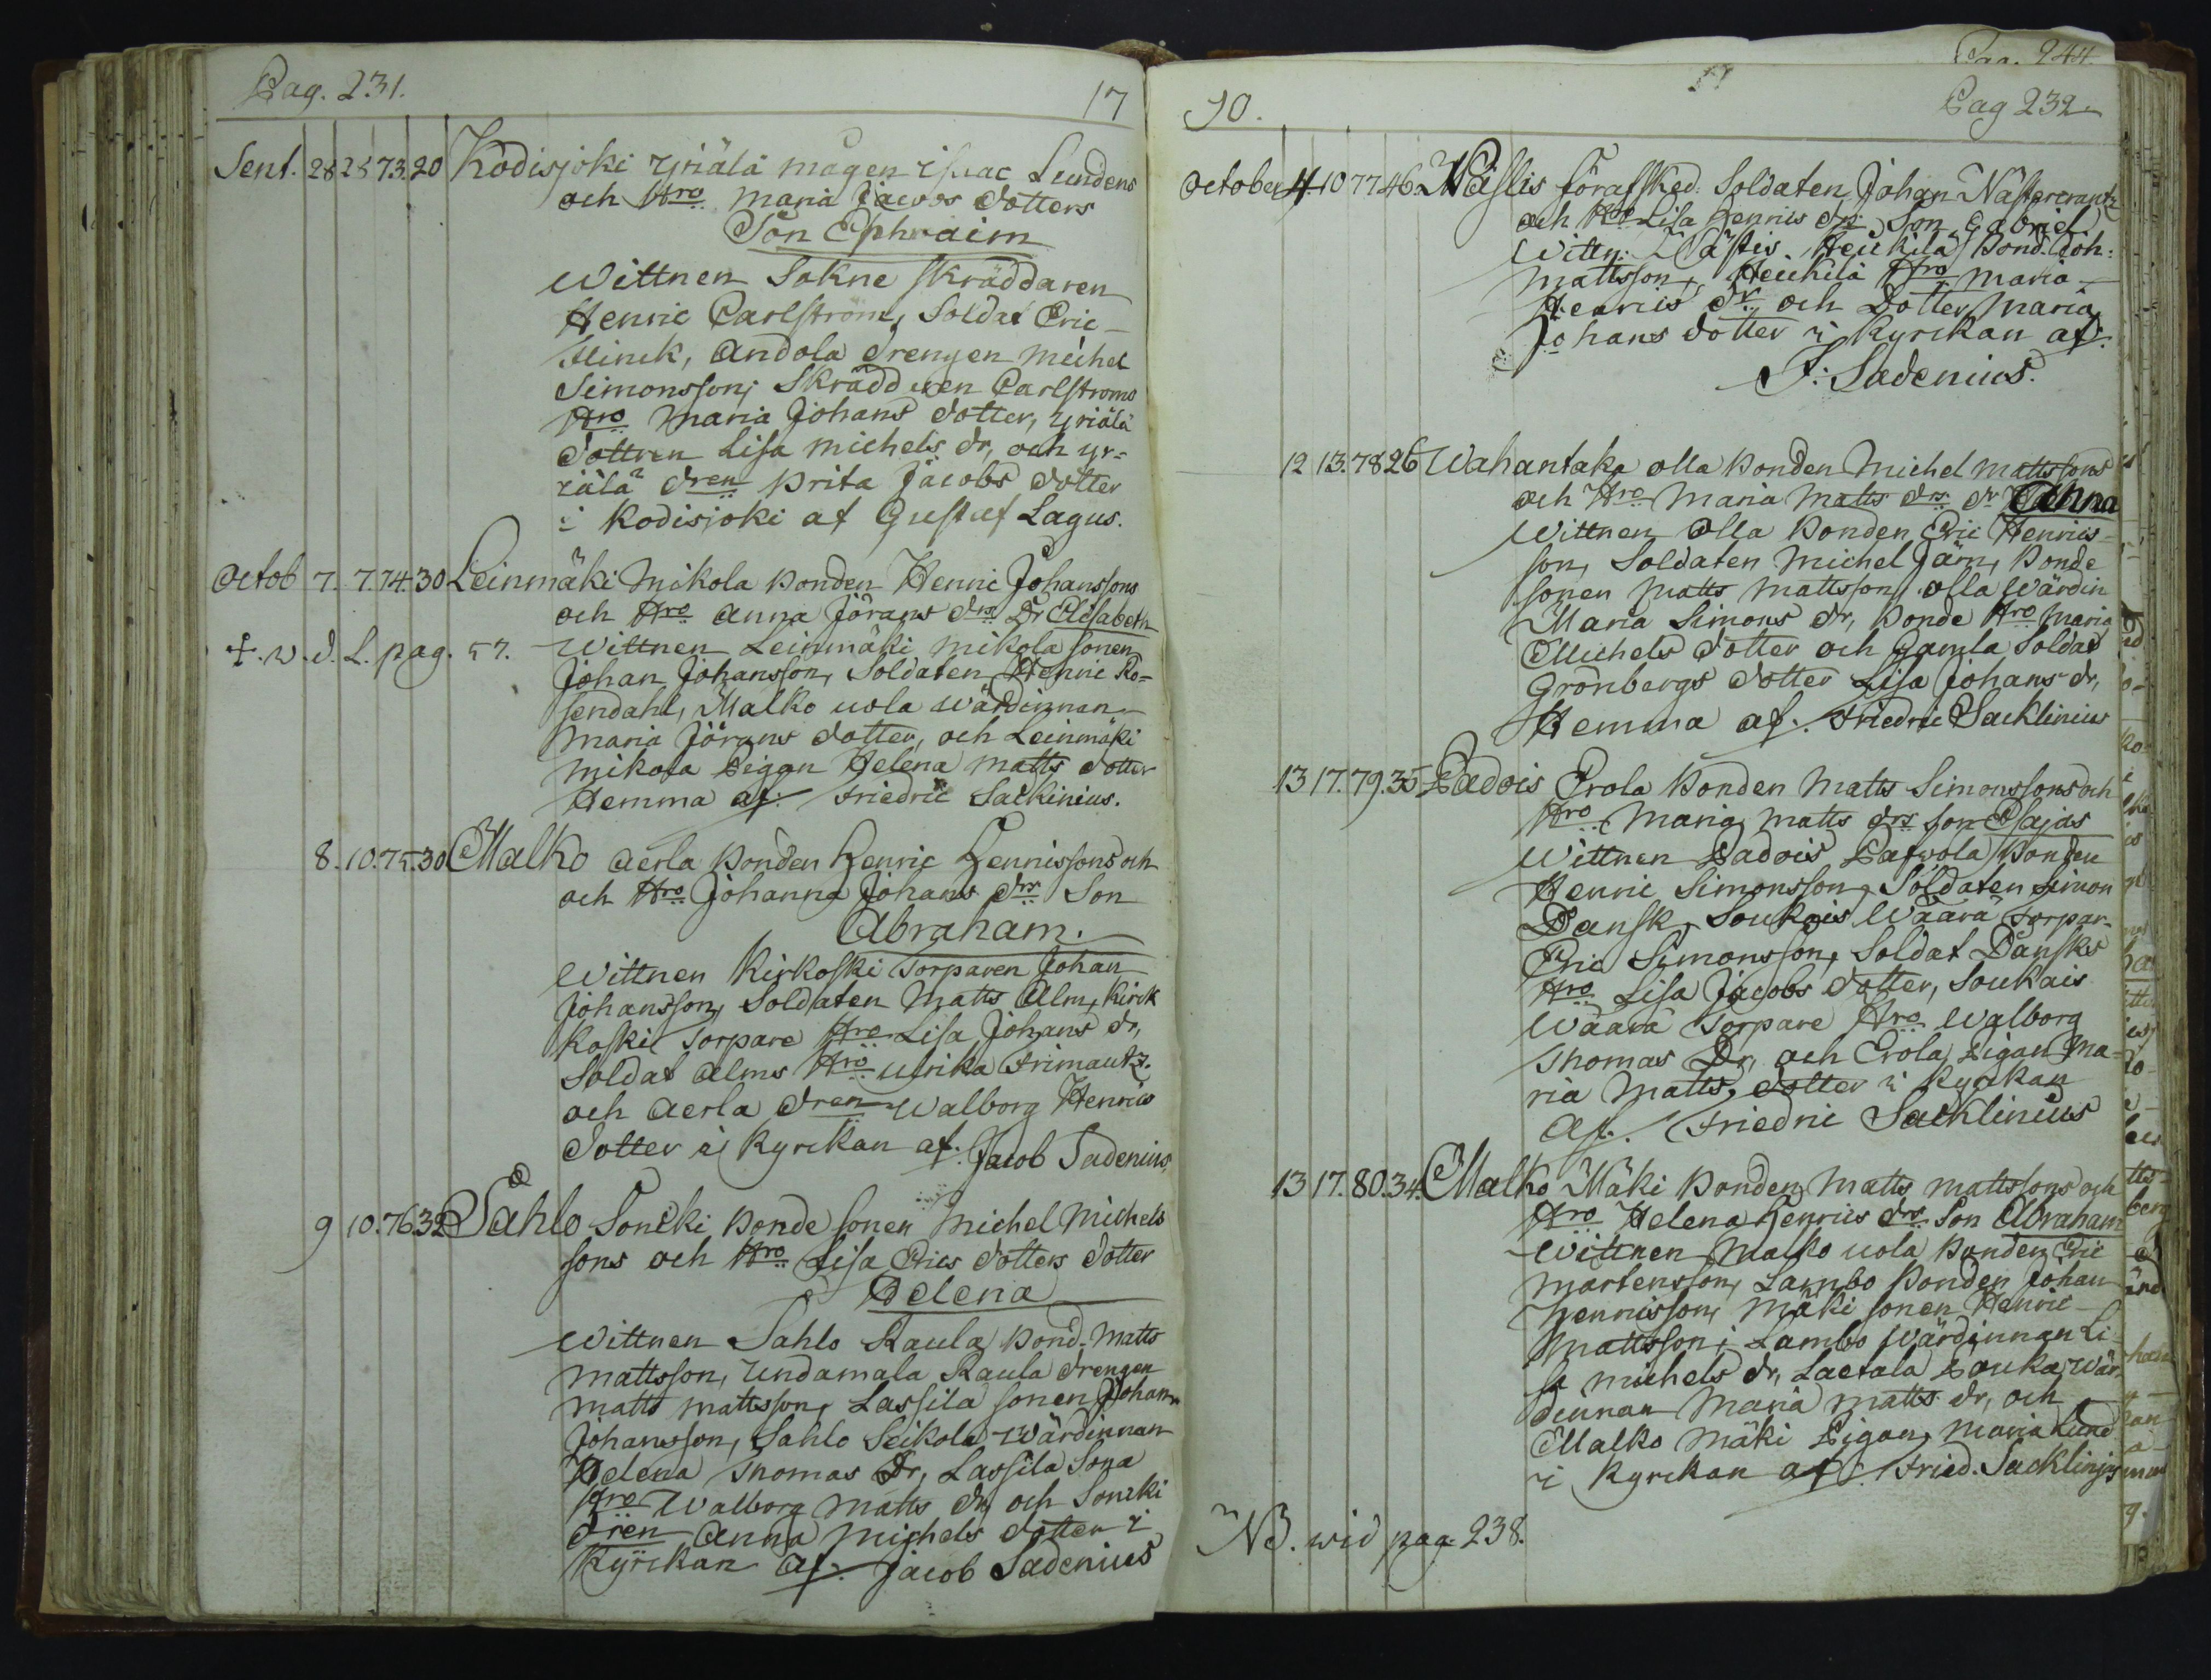 Pag. 231.
17
Sept. 28 28 73. 20 Kodisjoki Yriälä mågen Isaac Lundens
och Hro Maria Jacobs dotters
Son Ephraim
Wittnen Sokne Skräddaren
Henric Carlström, Soldat Eric
Flinck, Andola drengen Michel
Simonsson, Skräddaren Carlströms
Hro Maria Johans dotter, Yriälä
dottren Lisa Michels dr, och Yr=
iälä dren Brita Jacobs dotter
i Kodisjoki af Gustaf Lagus.
Octob 7. 7. 74. 30 Leinmäki Mikola Bonden Henric Johanssons
och Hro Anna Jörans drs Dr Elisabeth
†. w. d. L. pag. 57. Wittnen Leinmäki Mikola sonen
Johan Johansson, Soldaten Henric Ro=
sendahl, Malko uola Wärdinnan
Maria Jörans dotter, och Leinmäki
Mikola Pigan Helena Matts dotter
Hemma af. Friedric Sacklinius.
8. 10. 75. 30 Malko Aerla Bonden Henric Henrissons och
och Hro Johanna Johans drs Son
Abraham.
Wittnen Kirkoski Torparen Johan
Johansson, Soldaten Matts Alm, Kirck
koski Torpare Hro Lisa Johans dr,
Soldat Alms Hro Ulrika Frimantz.
och Aerla dren Walborg Henrics
dotter i Kyrckan af. Jacob Sadenius.
9 10. 76. 32 Sahlo Soncki Bonde sonen Michel Michels
sons och Hro Lisa Erics dotters dotter
Helena
Wittnen Sahlo Raula Bond. Matts
Mattsson, Undamala Raula drengen
Matts Mattsson, Lassila sonen Johan
Johansson, Sahlo Seikola Wärdinnan
Helena Thomas Dr, Lassila Sona
Hro Walborg Matts dr, och Soncki
dren Anna Michels dotter i
Kyrckan af. Jacob Sadenius
10.
17
Pag 232
Pag. 244.
October 4. 10 77 46. Wäslis förafsked. Soldaten Johan Näsfercrantz
och Hro Lisa Henrics drs Son Gabriel
Wittn. Heickilä Bond. Joh:
Mattsson, Heickilä Hro Maria
Henrics dr och Dotter Maria
Johans dotter i Kyrckan af.
J: Sadenius.
12 13. 78 26 Wahantaka Olla Bonden Michel Mattssons
och Hro Maria Matts drs dr Anna
Wittnen Olla Bonden Eric Henrics=
son, Soldaten Michel Järn, Bonde
sonen Matts Mattsson, Olla Wärdin
Maria Simons dr, Bonde Hro Maria
Michels dotter och Gamla Soldat
Grönbergs dotter Lisa Johans dr,
Hemma af. Friedric Sacklinius
13 17. 79. 35 Padois Erola Bonden Matts Simonssons och
Hro Maria Matts drs son Esajas
Wittnen Padois Pafwola Bonden
Henric Simonsson, Soldaten Simon
Dansk, Soukais Waara Torpar.
Eric Simonsson, Soldat Dansks
Hro Lisa Jacobs dotter, Soukais
Waara Torpare Hro Walborg
Thomas Dr, och Erola Pigan Ma=
ria Matts dotter i Kyrckan
Af. Friedric Sacklinius
13 17. 80. 34. Malko Mäki Bonden Matts Mattssons och
Hro Helena Henrics drs Son Abraham
Wittnen Malko uola Bonden Eric
Mårtensson, Lambo Bonden Johan
Henrisson, Mäki sonen Henric
Mattsson; Lambo Wärdinnan Li
sa Michels dr, Laetala Louka Wär
dinnan Maria Matts dr, och
Malko Mäki Pigan, Maria Lund
i Kyrckan af. Fried. Sacklinius
NB. wid pag 238.